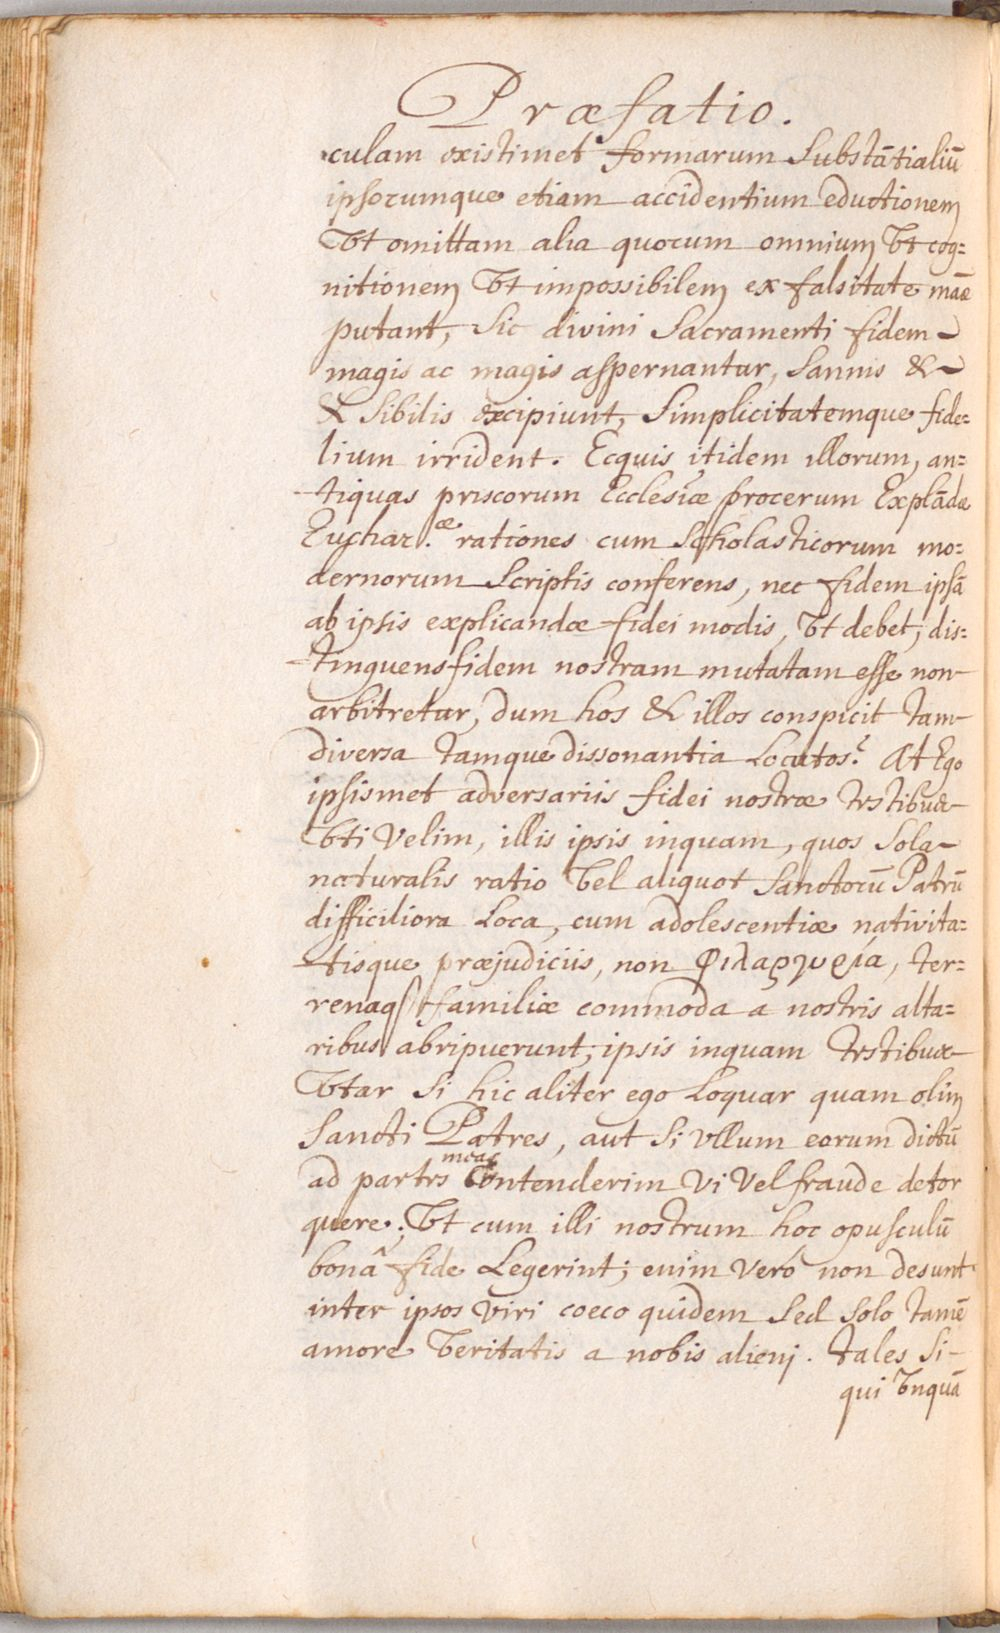 Præfatio.
culam existimet formarum Substātialiū
ipsorumque etiam accidentium eductionem
Vt omittam alia quorum omnium Vt cog=
nitionem Vt impossibilem ex falsitate māæ
putant, Sic divini Sacramenti fidem
magis ac magis aspernantur, Sannis &
& Sibilis excipiunt, Simplicitatemque fide=
lium irrident. Ecquis itidem illorum, an=
tiquas priscorum Ecclesiæ procerum Explādæ
Euchar.æ rationes cum Scholasticorum mo=
dernorum Scriptis conferens, nec fidem ipsā
ab ipsis explicandæ fidei modis, Vt debet, dis=
tinguens fidem nostram mutatam esse non
arbitretur, dum hos & illos conspicit tam
diversa tamque dissonantia Locutos? At Ego
ipsismet adversariis fidei nostræ testibus
Vti Velim, illis ipsis inquam, quos Sola
naturalis ratio Vel aliquot Sanctorū Patrū
difficiliora Loca, cum adolescentiæ nativita=
tisque præjudiciis, non φιλαργυρία, ter=
renaq familiæ commoda a nostris alta=
ribus abripuerunt, ipsis inquam testibus
Vtar Si hic aliter ego Loquar quam olim
Sancti Patres, aut Si Vllum eorum dictū
ad partes meas Contenderim Vi Vel fraude detor
quere; Vt cum illi nostrum hoc opusculū
bonâ fide Legerint; enim Veró non desunt
inter ipsos Viri coeco quidem Sed Solo tamē
amore Veritatis a nobis alieni. tales Si-
qui Vnquā